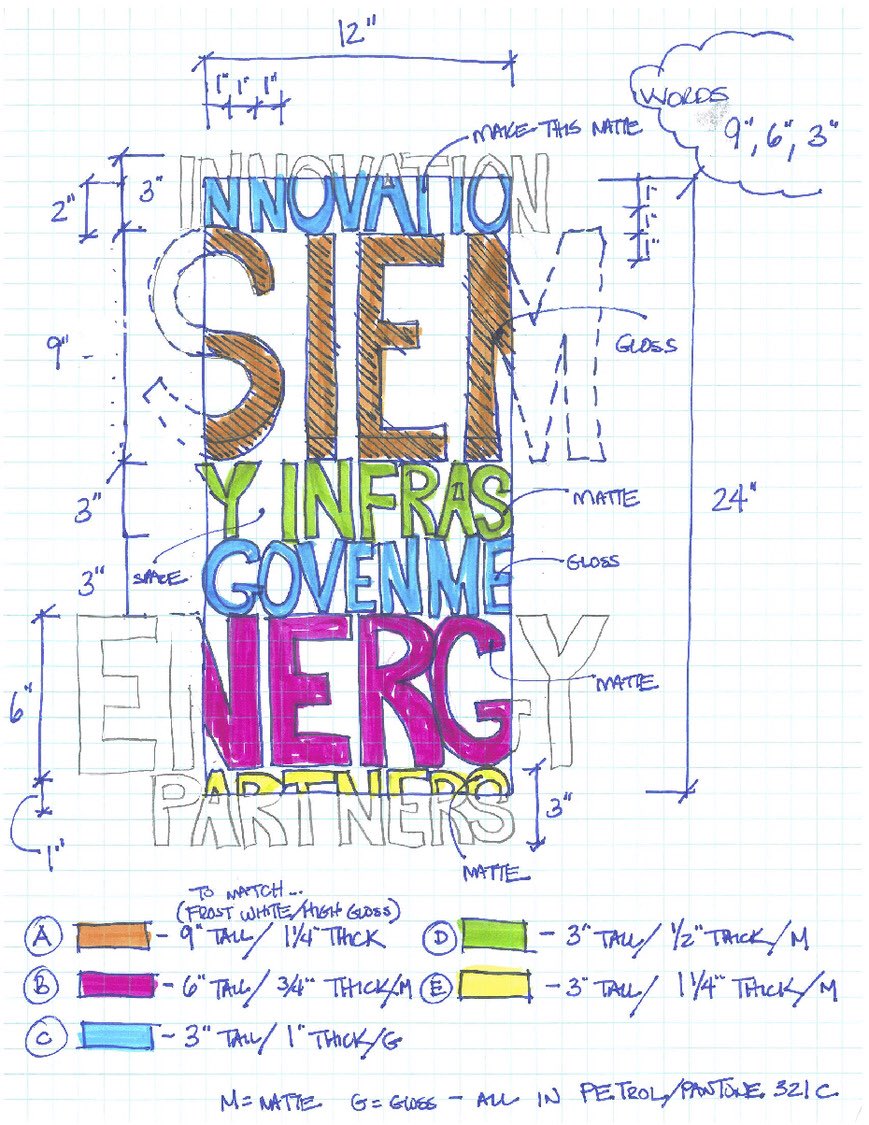 12"
1" 1" 1"
WORDS
9", 6", 3"
MAKE THIS MATTE
3"
2"
INNOVATION
1"
1"
1"
SIEM
9"
GLOSS
24"
3"
Y INFRAS
MATTE
SPACE
3"
GOVENME
GLOSS
ENERGY
6"
MATTE
PARTNERS
3"
1"
MATTE
TO MATCH...
(FROST WHITE/HIGH GLOSS)
A - 9" TALL/ 1 1/4" THICK
D - 3" TALL/ 1/2" THICK/M
B - 6" TALL/ 3/4" THICK/M
E - 3" TALL/ 1 1/4" THICK/M
C - 3" TALL/ 1" THICK/G
M = MATTE G = GLOSS - ALL IN PETROL/PANTONE 321 C.